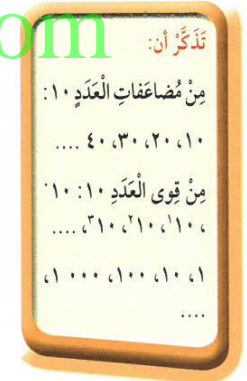 om
تَذَكَّرْ أن:
مِنْ مُضاعَفاتِ الْعَدَدِ ١٠:
١٠، ٢٠، ٣٠، ٤٠ ....
مِنْ قِوى الْعَدَدِ ١٠: ١٠˙
، ١٠¹، ١٠²، ١٠³، ....
١، ١٠، ١٠٠، ٠٠٠ ١،
....